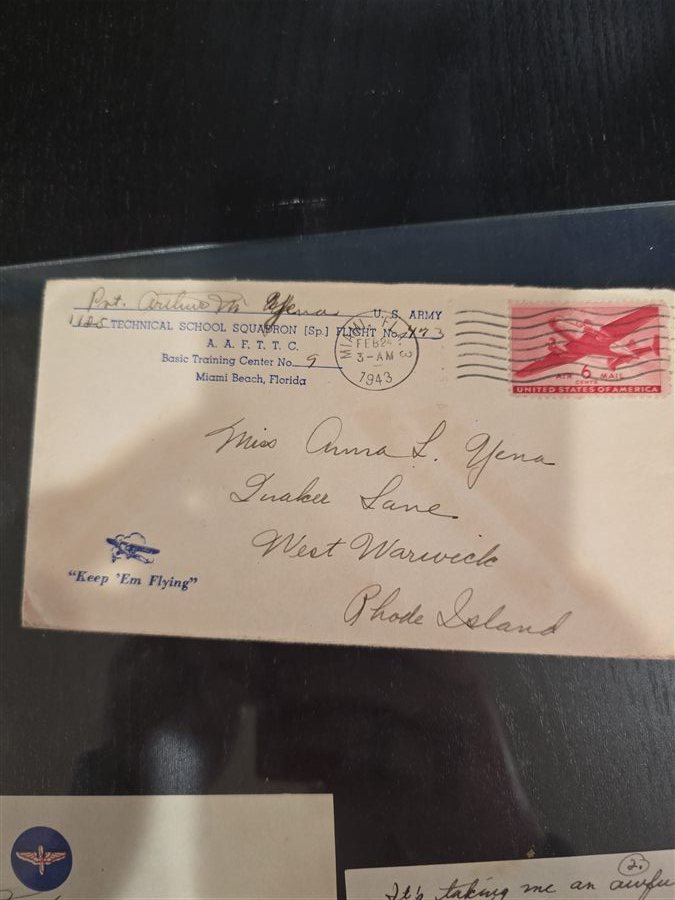 Pvt. Arthur M Yena U. S. ARMY
1125 TECHNICAL SCHOOL SQUADRON [Sp.] FLIGHT No. 473
A. A. F. T. T. C.
Basic Training Center No. 9
Miami Beach, Florida
MIAMI, FLA.
FEB 24
3-AM
1943
AIR 6 MAIL
CENTS
UNITED STATES OF AMERICA
Miss Anna L. Yena
Quaker Lane
West Warwick
Rhode Island
"Keep 'Em Flying"
2.
It's taking me an awfu